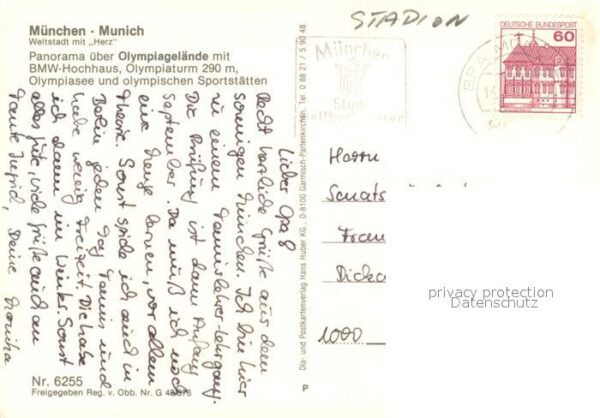 München · Munich
Weltstadt mit „Herz"
Panorama über Olympiagelände mit
BMW-Hochhaus, Olympiaturm 290 m,
Olympiasee und olympischen Sportstätten
Lieber Opa!
Recht herzliche Grüße aus dem
sonnigen München. Ich bin hier
in einem Tennislehrer-Lehrgang.
Die Prüfung ist dann Anfang
September. Da muß ich noch
eine Menge lernen, vor allem
Theorie. Sonst spiele ich auch in
Berlin jeden Tag Tennis und
habe wenig Freizeit. Die habe
ich dann im Winter. Sonst
alles Gute, viele Grüße auch an
Tante Ingrid, Deine Monika
Nr. 6255
Freigegeben Reg. v. Obb. Nr. G
Dia- und Postkartenverlag Hans Huber KG., D-8100 Garmisch-Partenkirchen, Tel. 0 88 21 / 5 90 48
P
STADION
München
Stadt
DEUTSCHE BUNDESPOST
60
Herrn
Senats
Frau
1000
privacy protection
Datenschutz